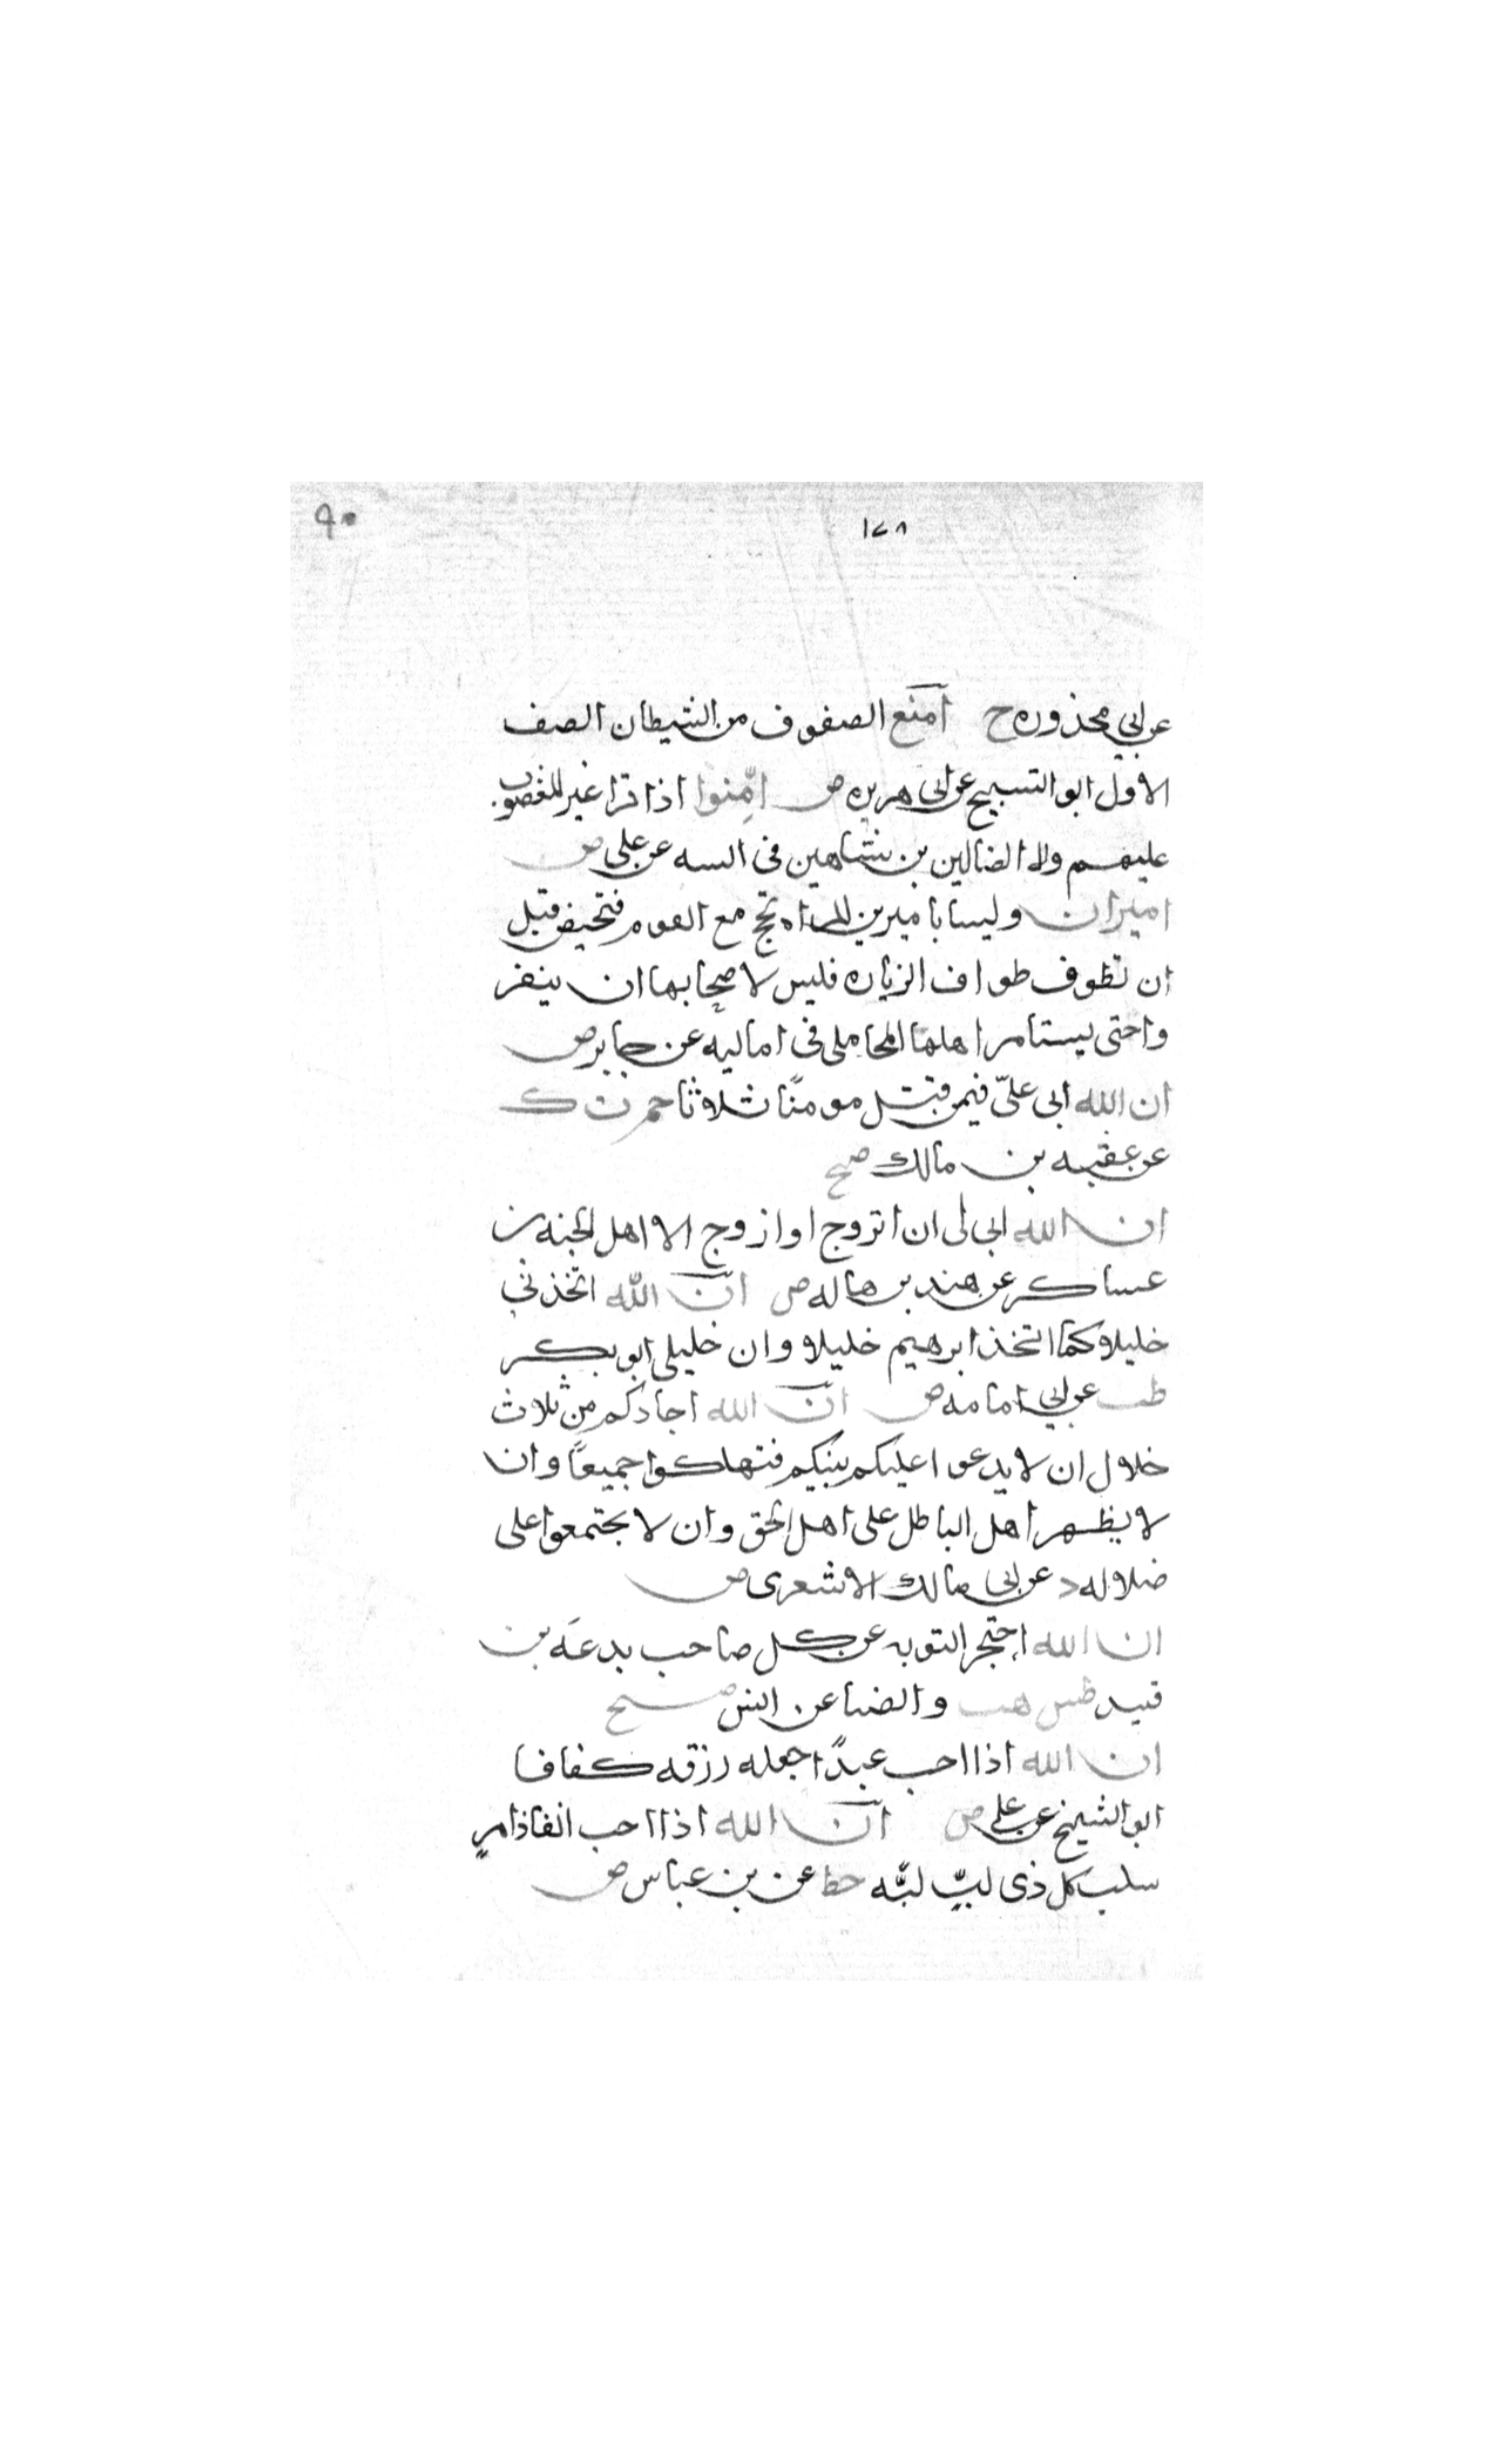 ٩٠
١٧٨
عن ابي محذوره ح امنع الصفوف من الشيطان الصف
الاول ابو الشيخ عن ابي هريره ض امنوا اذا قرا غير المغضوب
عليهم ولا الضالين بن شاهين في السنه عن علي ض
اميران وليسا باميرين المراه تحج مع القوم فتحيض قبل
ان تطوف طواف الزياره فليس لاصحابها ان ينفر
وا حتى يستامر اهلها المحاملي في اماليه عن جابر ض
ان الله ابى علىّ فيمن قتل مومنًا ثلاثا حم ن ك
عن عقبه بن مالك صح
ان الله ابى لى ان اتزوج او ازوج الا اهل الجنه بن
عساكر عن هند بن هاله ض انّ الله اتخذني
خليلا كما اتخذ ابرهيم خليلا وان خليلي ابو بكر
طب عن ابي امامه ض انّ الله اجاركم من ثلاث
خلال ان لا يدعوا عليكم نبيكم فتهلكوا جميعًا وان
لا يظهر اهل الباطل على اهل الحق وان لا يجتمعوا على
ضلاله د عن ابي مالك الاشعرى ض
ان الله احتجر التوبه عن كل صاحب بدعه بن
فيد طس هب والضيا عن انس صح
ان الله اذا احب عبدًا جعله رزقه كفافا
ابو الشيخ عن علي ض انّ الله اذا احب انفاذ امرٍ
سلب كل ذى لبٍّ لبّه خط عن بن عباس ض